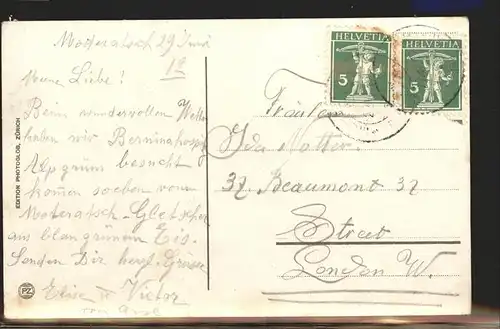 Morteratsch 29 Juni
12
Meine Liebe!
Beim wundervollen Wetter
haben wir Berninahospiz
Alpgrüm besucht
kommen soeben vom
Morteratsch-Gletscher
aus blaugrünem Eis.
Senden Dir herzl. Grüsse
Elise u Victor
von
HELVETIA
5
HELVETIA
5
Fräulein
Ida Notter.
37 Beaumont 37
Street
London W.
EDITION PHOTOGLOB, ZÜRICH
PZ